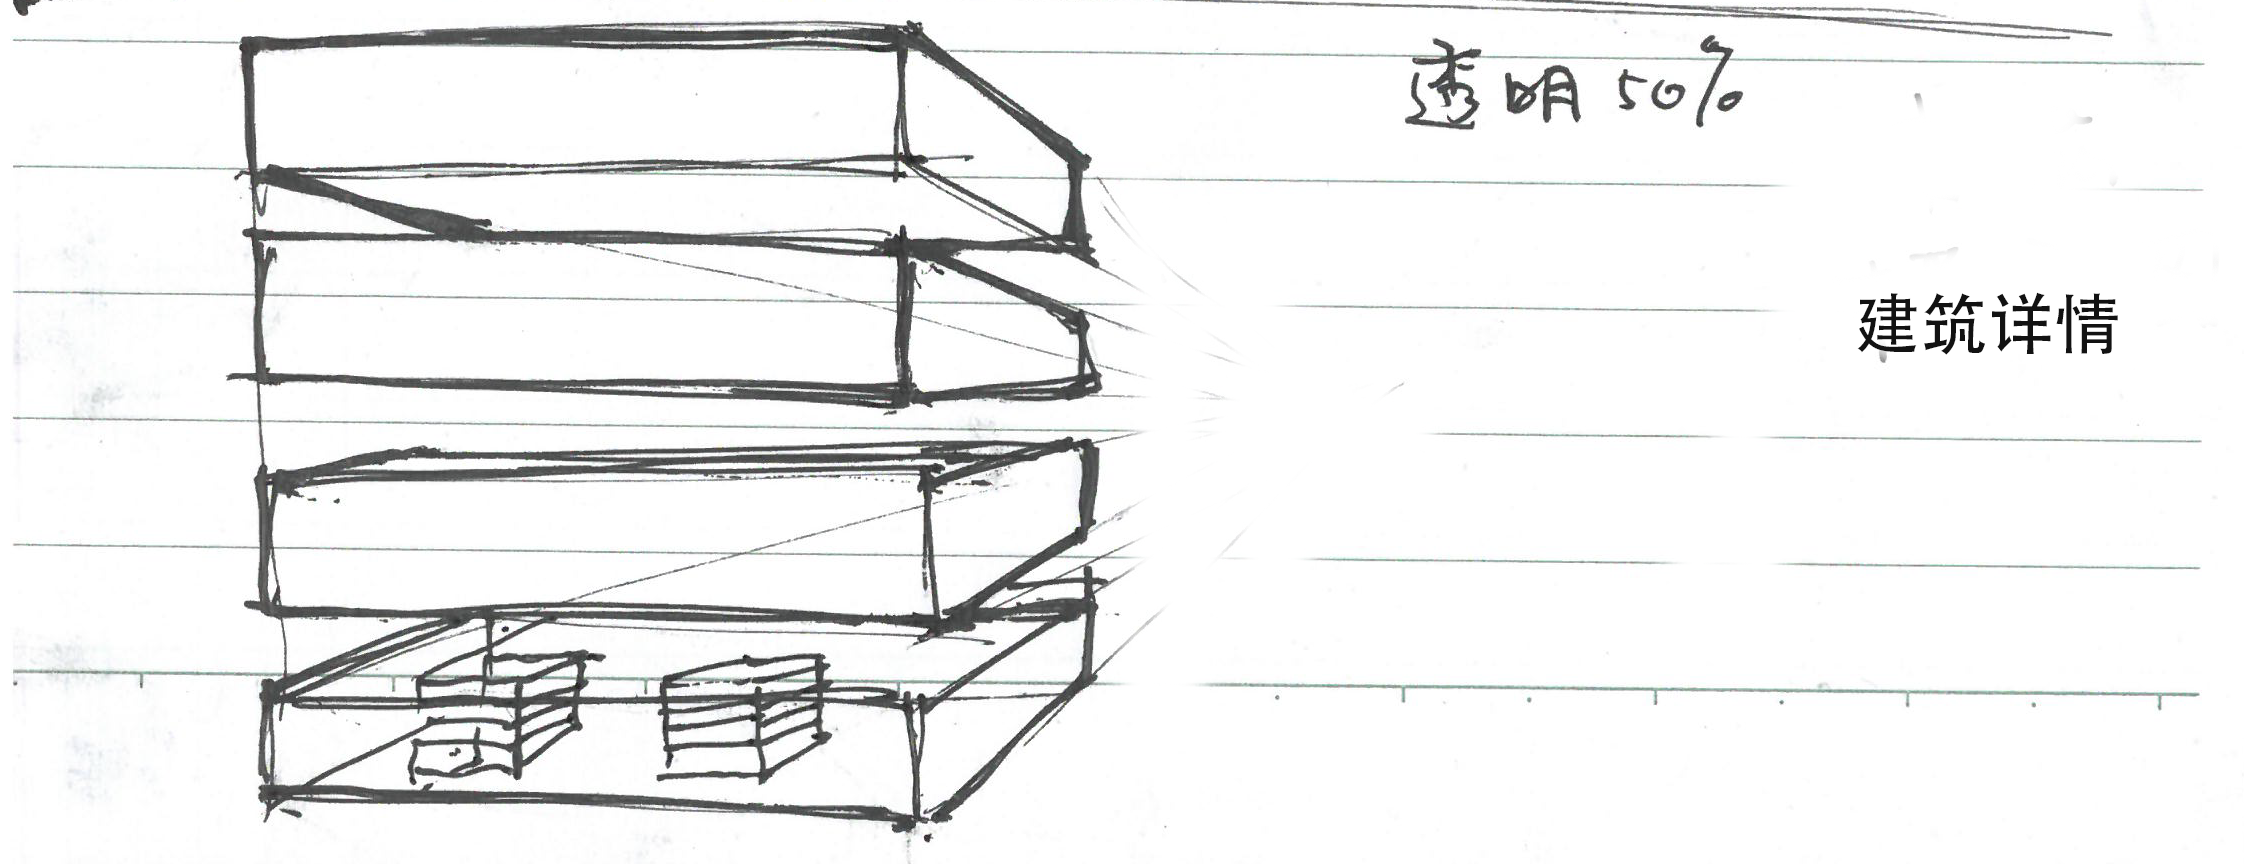 透明50%
建筑详情